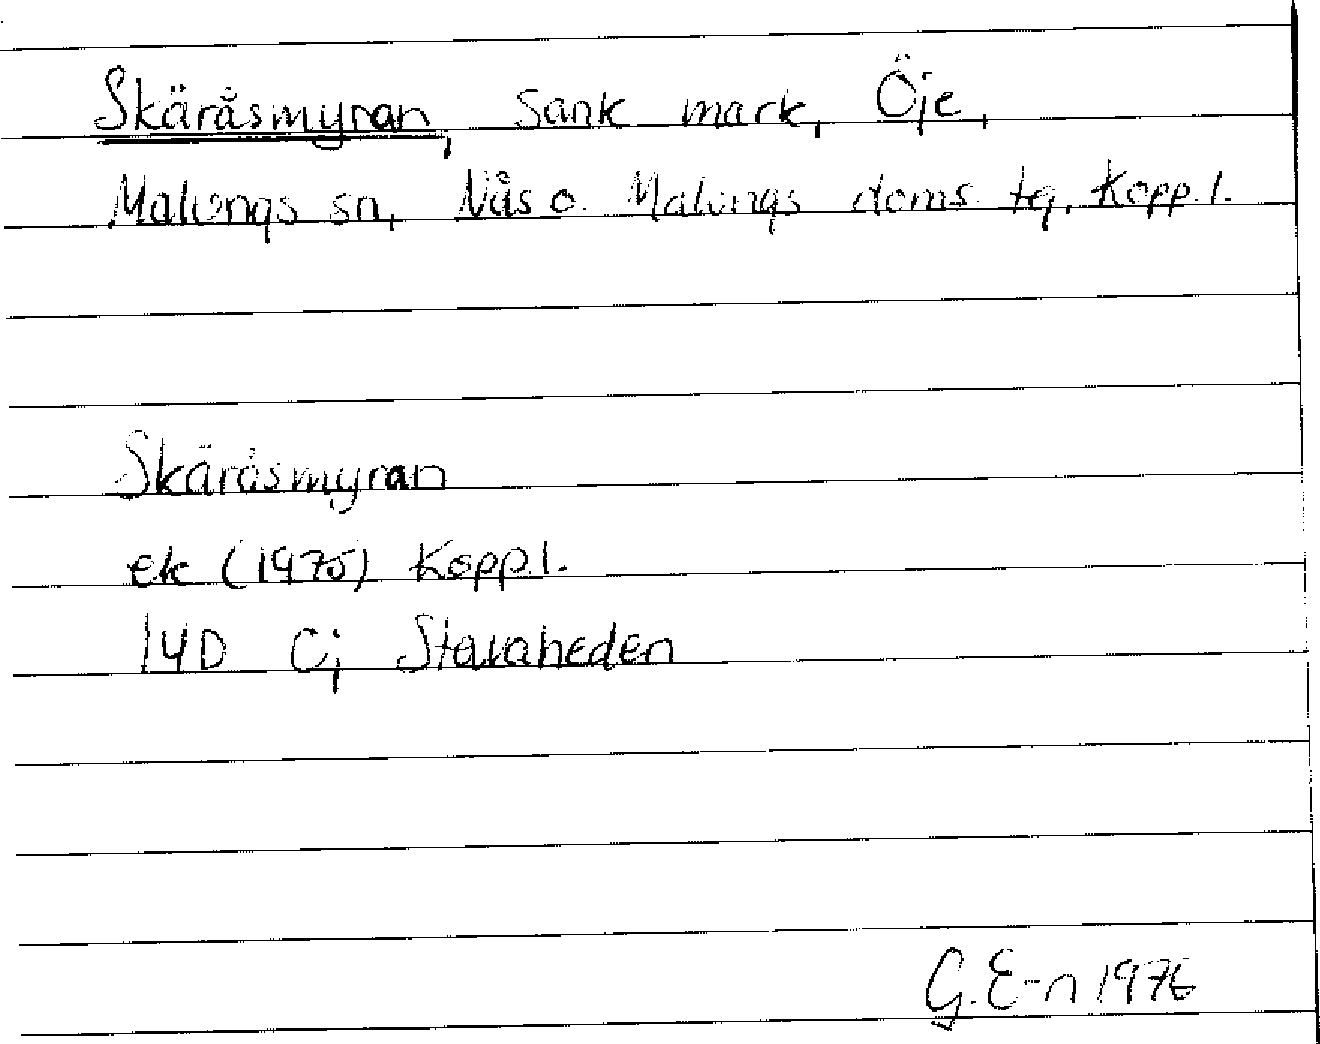 Skäråsmyran, Sank mark, Öje,
Malungs sn, Nås o. Malungs doms. tg. Kopp. l.
Skäråsmyran
ek (1975) Kopp. l.
14D Cj Stavaheden
G. E-n 1976